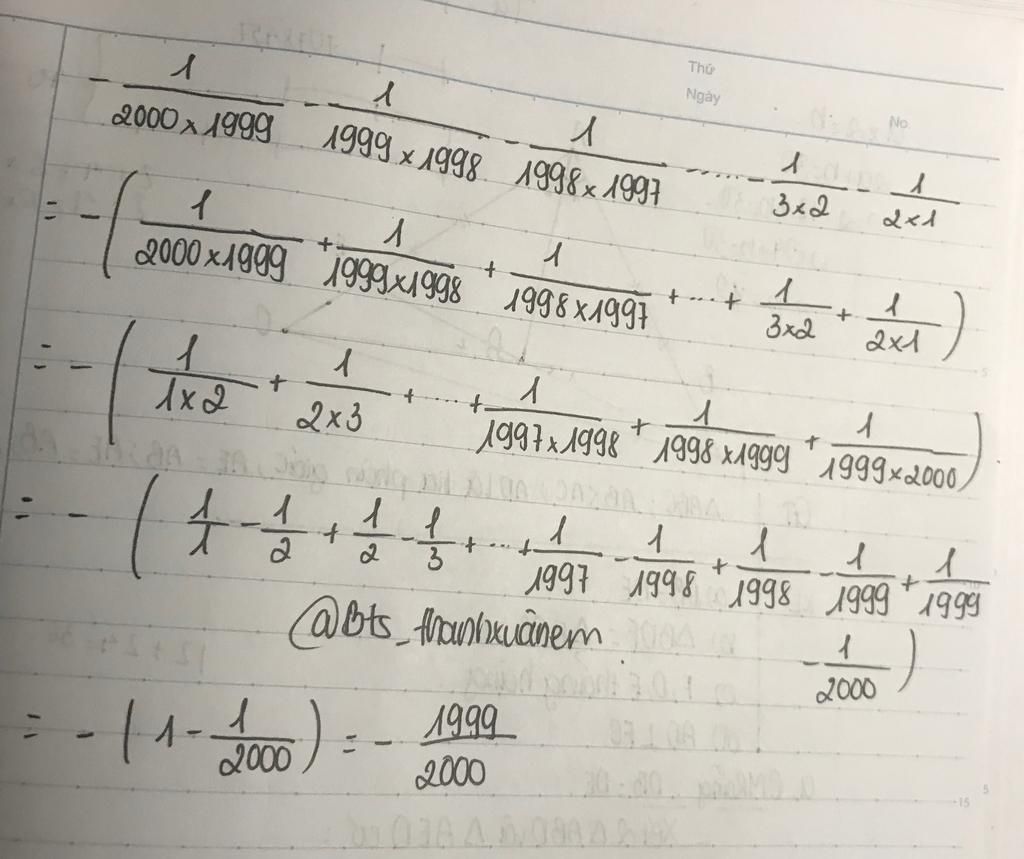 Thứ
Ngày
No.
- 1/(2000×1999) - 1/(1999×1998) - 1/(1998×1997) - ..... - 1/(3×2) - 1/(2×1)
= - ( 1/(2000×1999) + 1/(1999×1998) + 1/(1998×1997) + ... + 1/(3×2) + 1/(2×1) )
= - ( 1/(1×2) + 1/(2×3) + ... + 1/(1997×1998) + 1/(1998×1999) + 1/(1999×2000) )
= - ( 1/1 - 1/2 + 1/2 - 1/3 + ... + 1/1997 - 1/1998 + 1/1998 - 1/1999 + 1/1999
@Bts_thanhxuânem
- 1/2000 )
= - ( 1 - 1/2000 ) = - 1999/2000